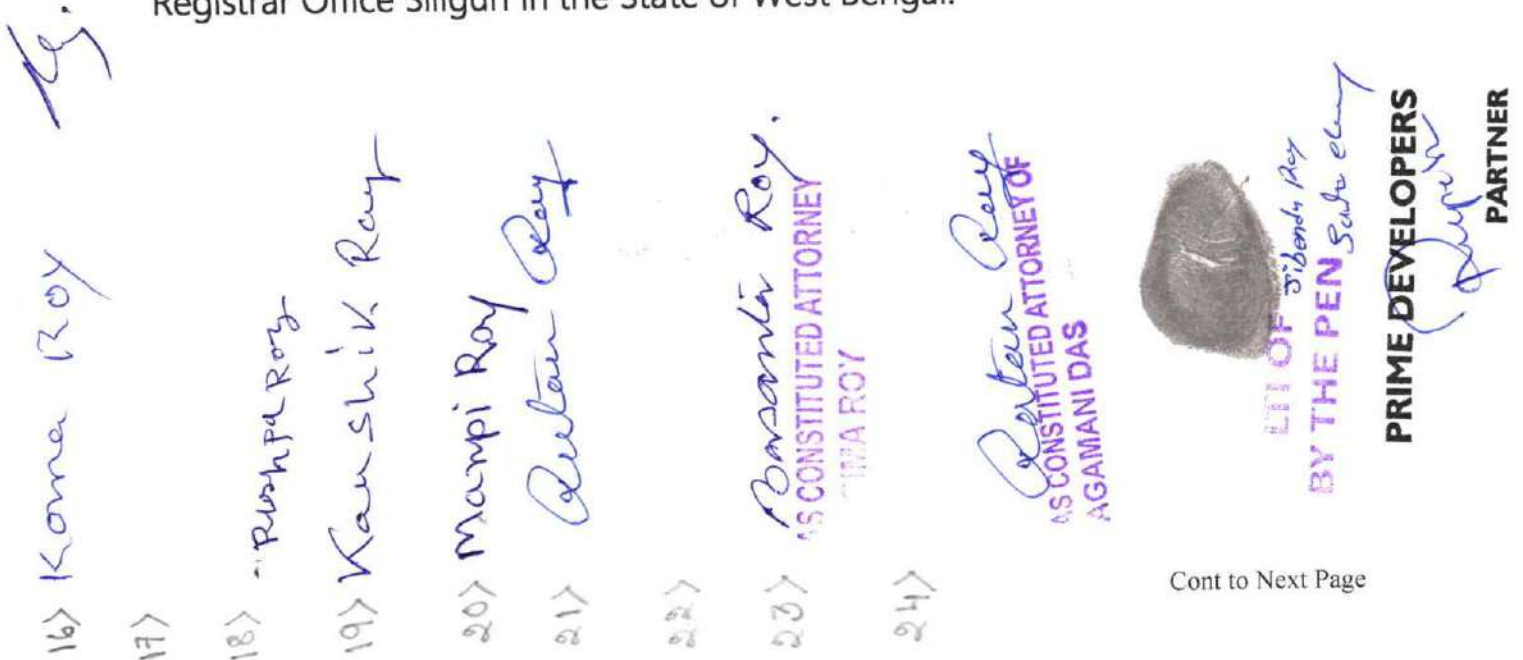 Registrar Office Siliguri in the State of West Bengal.
16) Koma ROY
17)
18) Pushpa Roy
19) Kaushik Ray
20) Mampi Roy
21) Ratan Ray
22)
23) Basanti Roy.
AS CONSTITUTED ATTORNEY
ROY
24) Ratan Ray
AS CONSTITUTED ATTORNEY OF
AGAMANI DAS
LTI OF Sibendu Ray
BY THE PEN
PRIME DEVELOPERS
PARTNER
Cont to Next Page